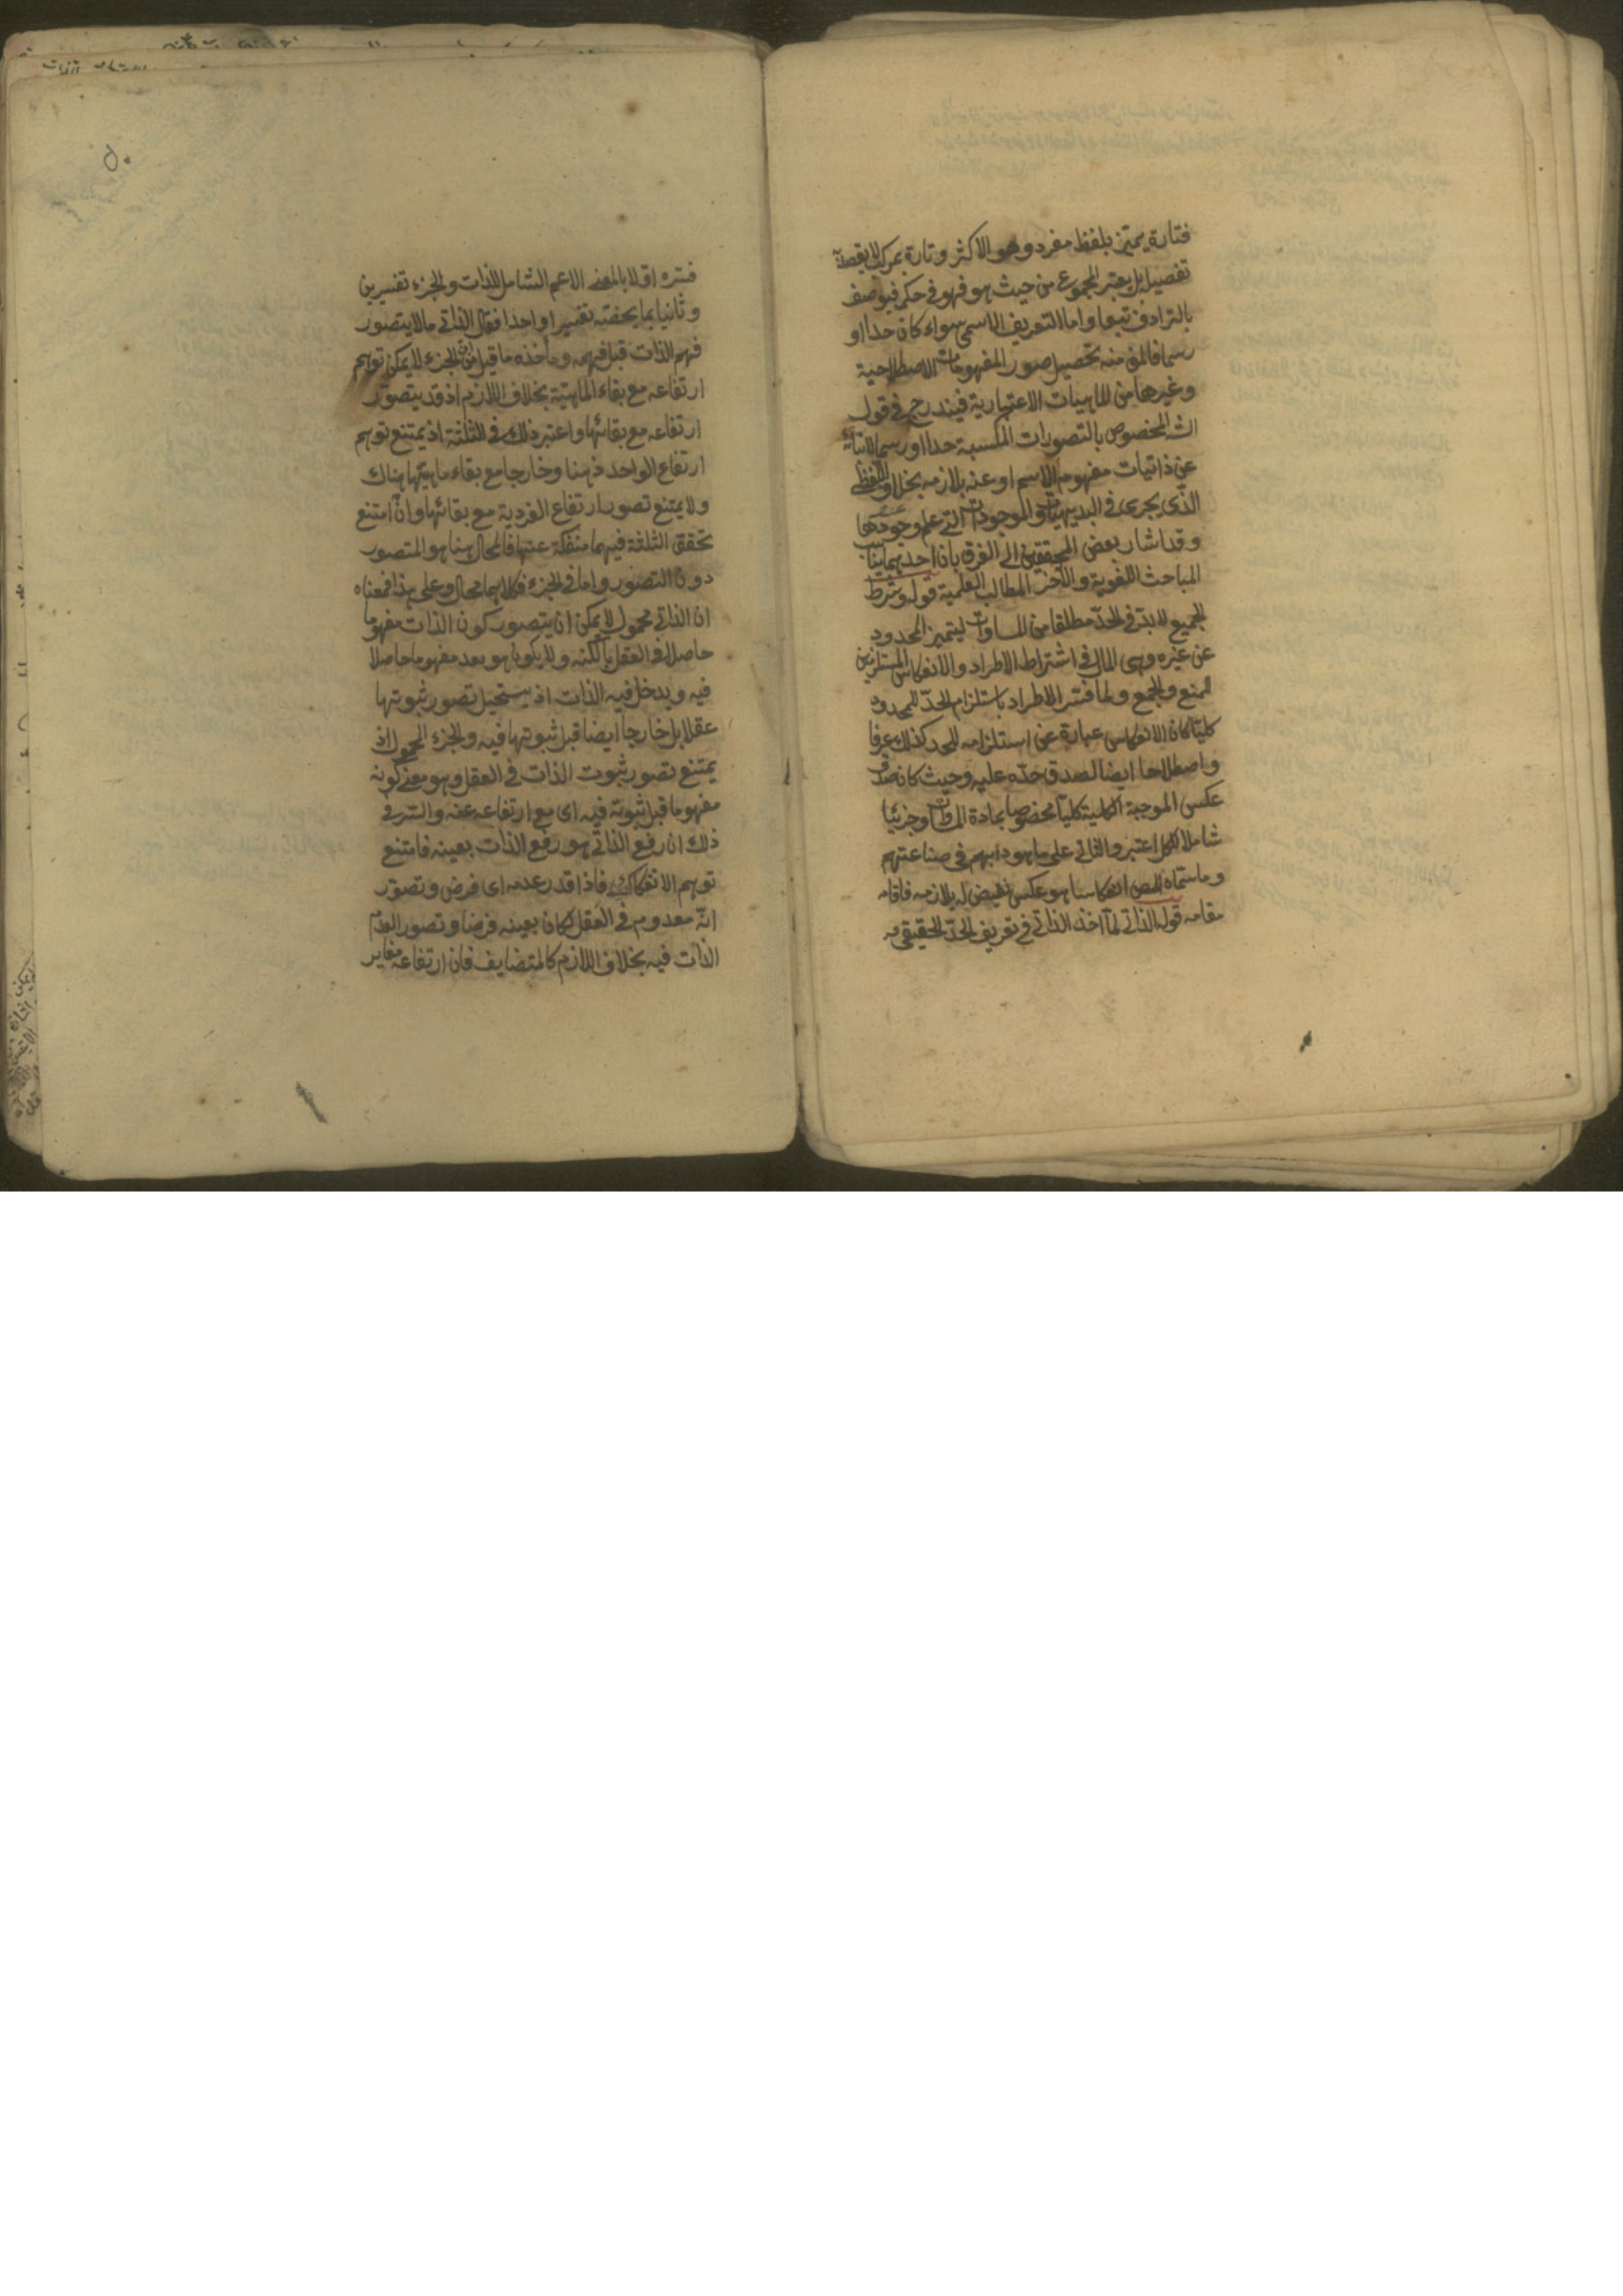 فتارة يميز بلفظ مفرد وهو الاكثر وتارة بمركب لا يقصد به
تفصيل بل يعتبر المجموع من حيث هو فهو في حكمه فيوصف
بالترادف تبعا واما التعريف الاسمي سواء كان حدا او
رسما فالمق منه تحصيل صور المفهومات الاصطلاحية
وغيرها من الماهيات الاعتبارية فيندرج في قول
الش المخصوص بالتصورات المكتسبة حدا او رسما لانبائه
عن ذاتيات مفهوم الاسم او عنه بلازمه بخلاف اللفظي
الذي يجري في البديهيات والموجودات التي علم وجودها
وقد اشار بعض المحققين الى الفرق بان احدهما يناسب
المباحث اللغوية والآخر المطالب العلمية قوله وشرط
الجميع لا بد في الحد مطلقا من المساوات ليتميز المحدود
عن غيره وهي المآل في اشتراط الاطراد والانعكاس المستلزمين
للمنع والجمع ولما فسر الاطراد باستلزام الحد للمحدود
كليا كان الانعكاس عبارة عن استلزامه للحد كذلك عرفا
واصطلاحا ايضا لصدق حده عليه وحيث كان صدق
عكس الموجبة الكلية كليا مخصوصا بمادة المساوات وجزئيا
شاملا للكل اعتبر والثاني على ما هو دابهم في صناعتهم
وما سماه المص انعكاسا هو عكس نقيض له يلازمه فاقامه
مقامه قوله الذاتي لما اخذ الذاتي في تعريف الحد الحقيقي
فسره اولا بالمعنى الاعم الشامل للذات والجزء تفسيرين
وثانيا بما يخصه تفسيرا واحدا فقال الذاتي ما لا يتصور
فهم الذات قبل فهمه ومأخذه ما قيل من ان الجزء لا يمكن توهم
ارتفاعه مع بقاء الماهية بخلاف اللازم اذ قد يتصور
ارتفاعه مع بقائها واعتبر ذلك في الثلثة اذ يمتنع توهم
ارتفاع الواحد ذهنا وخارجا مع بقاء ماهيتها هناك
ولا يمتنع تصور ارتفاع الفردية مع بقائها وان امتنع
تحقق الثلثة فيهما منفكة عنها فالمحال هنا هو المتصور
دون التصور واما في الجزء فكلاهما محال وعلى هذا فمعناه
ان الذاتي محمول لا يمكن ان يتصور كون الذات مفهوما
حاصلا في العقل بالكنه ولا يكون هو بعد مفهوما حاصلا
فيه ويدخل فيه الذات اذ يستحيل تصور ثبوتها
عقلا بل خارجا ايضا قبل ثبوتها فيه والجزء المحمول اذ
يمتنع تصور ثبوت الذات في العقل وهو معنى كونه
مفهوما قبل ثبوته فيه اي مع ارتفاعه عنه والسر في
ذلك ان رفع الذاتي هو رفع الذات بعينه فامتنع
توهم الانفكاك فاذا قدر عدمه اي فرض وتصور
انه معدوم في العقل كان بعينه فرضا وتصور العدم
الذات فيه بخلاف اللازم كالمتضايف فان ارتفاعه مغاير